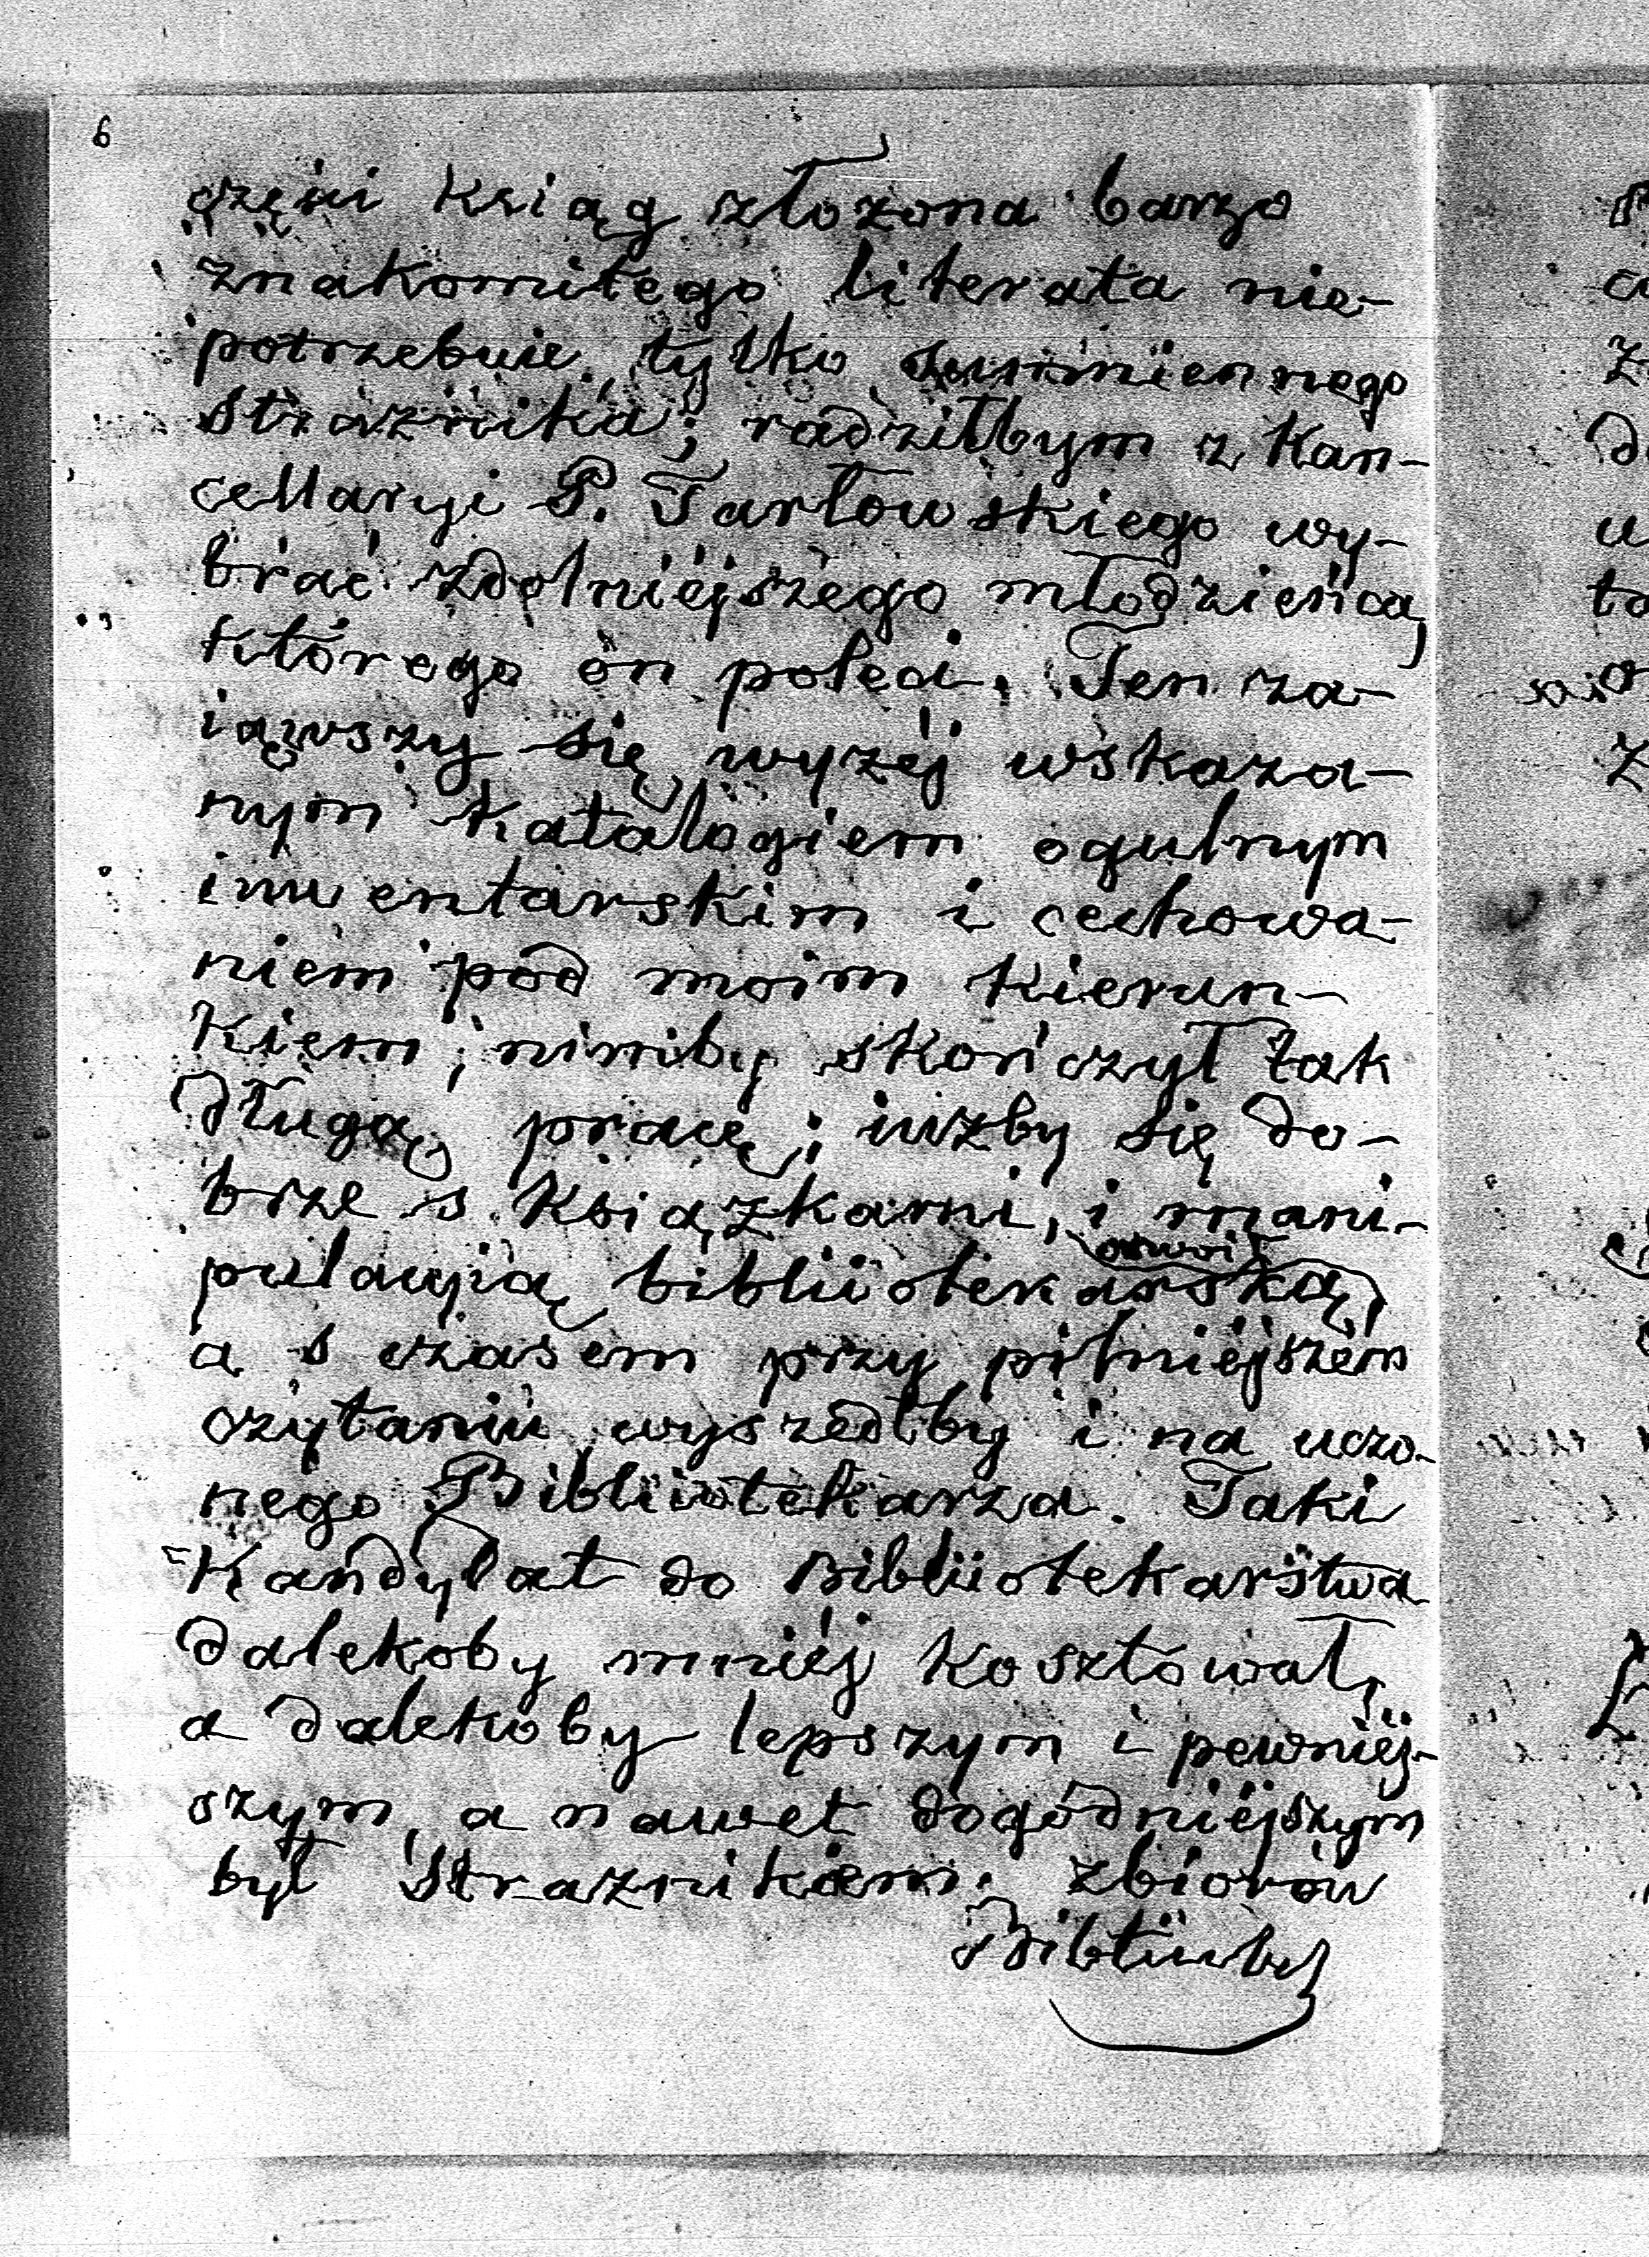 6
części Ksiąg złożona barzo
znakomitego literata nie-
potrzebuie tylko sumiennego
Strażnika; radziłbym z Kan-
cellaryi P. Tarłowskiego wy-
brać zdolniejszego młodzieńca,
którego on poleci. Ten za-
iąwszy się wyżej wskaza-
nym Katalogiem ogulnym
inwentarskim i cechowa-
niem pod moim Kierun-
Kiem; nimby skończył tak
długą pracę; iużby się do-
brze s Książkami, i mani-
pulacyią bibliiotekarską
oswoił,
a s czasem przy pilniejszem
czytaniu wyszedłby i na uczo-
nego Bibliiotekarza. Taki
Kandydat do Bibliiotekarstwa
dalekoby mniej Kosztował,
a dalekoby lepszym i pewniej-
szym, a nawet dogodniejszym
był Strażnikiem. zbiorów